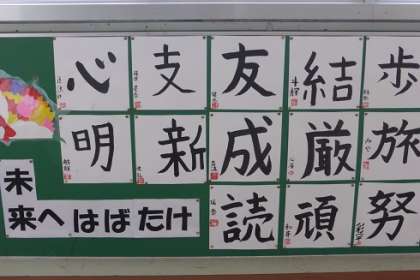 心 支 友 結 歩
明 新 成 厳 旅
読 頑 努
未
来へはばたけ